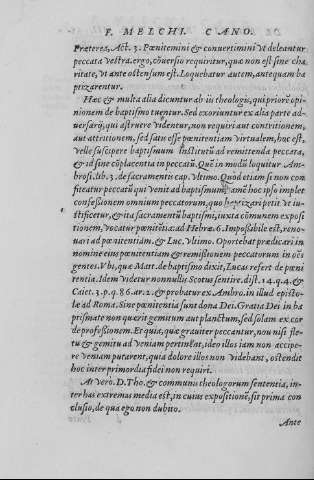 F. MELCHI. CANO.
Præterea, Act. 3. Pœnitemini & convertimini vt deleantur
peccata vestra. ergo, cõuersio requiritur, quæ non est sine cha
ritate, vt ante ostensum est. Loquebatur autem, antequam ba
ptizarentur.
Hæc & multa alia dicuntur ab iis theologis, qui priorẽ opi
nionem de baptismo tuentur. Sed exoriuntur ex alia parte ad-
uersarij, qui astruere videntur, non requiri aut contritionem,
aut attritionem, sed satis esse pœnitentiam virtualem, hoc est,
velle suscipere baptismum institutũ ad remittenda peccata,
& id sine cõplacentia in peccatũ. Quẽ in modũ loquitur Am-
brosi. lib. 3. de sacramentis cap. vltimo. Quòd etiam si non con
fiteatur peccatũ qui venit ad baptismum, tamẽ hoc ipso implet
confessionem omnium peccatorum, quo baptizari petit vt iu-
stificetur, & ita sacramentũ baptismi, iuxta cõmunem exposi
tionem, vocatur pœnitẽtia. ad Hebræ. 6. Impossibile est, reno-
uari ad pœnitentiam. & Luc. vltimo. Oportebat prædicari in
nomine eius pœnitentiam & remißionem peccatorum in oẽs
gentes. Vbi, quæ Matt. de baptismo dixit, Lucas refert de pœni
tentia. Idem videtur nonnullis Scotus sentire. dist. 14. q. 4. &
Caiet. 3. p. q. 86. ar. 2. & probatur ex Ambro. in illud episto-
læ ad Roma. Sine pœnitentia sunt dona Dei. Gratia Dei in ba
ptismate non quærit gemitum aut planctum, sed solam ex cor
de profeßionem. Et quia, quæ grauiter peccantur, non nisi fle-
tu & gemitu ad veniam pertinẽt, ideo illos iam non accipe-
re veniam putarent, quia dolere illos non videbant, ostendit
hoc inter primordia fidei non requiri.
At vero. D. Tho. & communis theologorum sententia, in-
ter has extremas media est, in cuius expositionẽ, sit prima con
clusio, de qua ego non dubito.
Ante